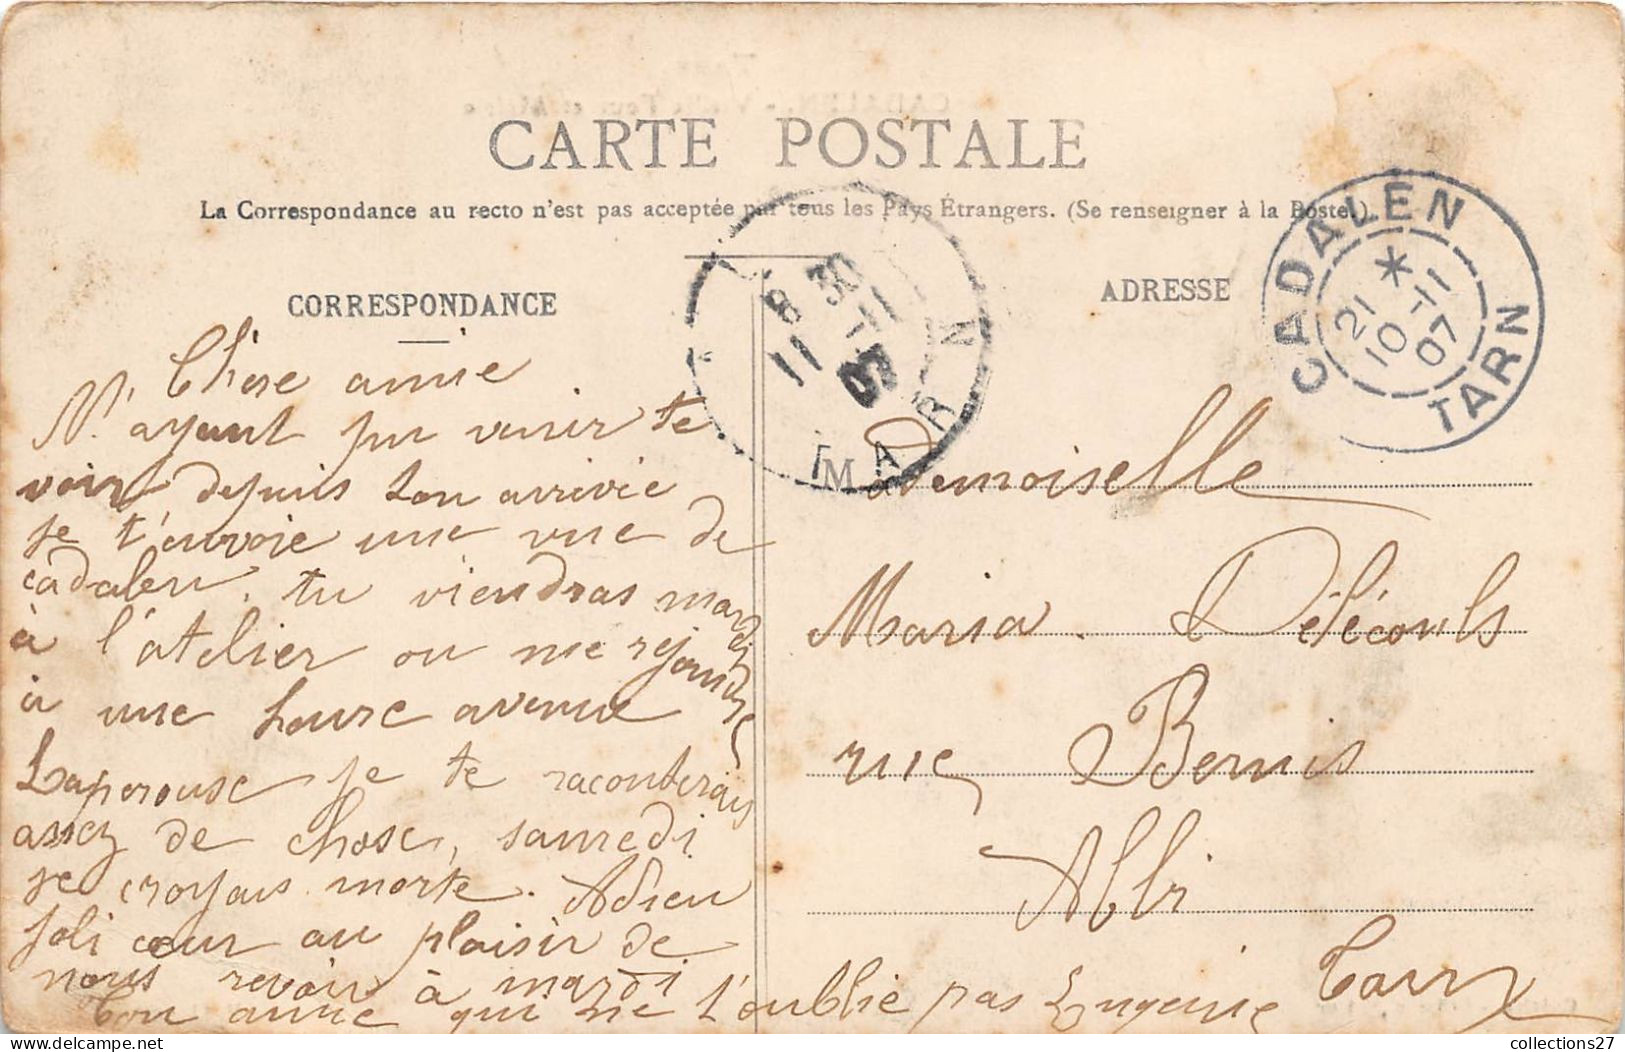 CARTE POSTALE
La Correspondance au recto n'est pas acceptée par tous les Pays Étrangers. (Se renseigner à la Poste.)
CORRESPONDANCE
Chère amie
N'ayant pu venir te
voir depuis ton arrivée
je t'envoie une vue de
cadalen. tu viendras mardi
à l'atelier ou me rejoindre
à une heure avenue
Laperouse je te raconterais
assez de chose, samedi
je croyais morte. Adieu
joli cœur au plaisir de
nous revoir à mardi
Ton amie qui ne t'oublie pas Eugenie
ADRESSE
CADALEN
TARN
21 *
10-11
07
8 30
11 -11
07
TARN
Mademoiselle
Maria Delécouls
rue Bernis
Albi
Tarn
collections27